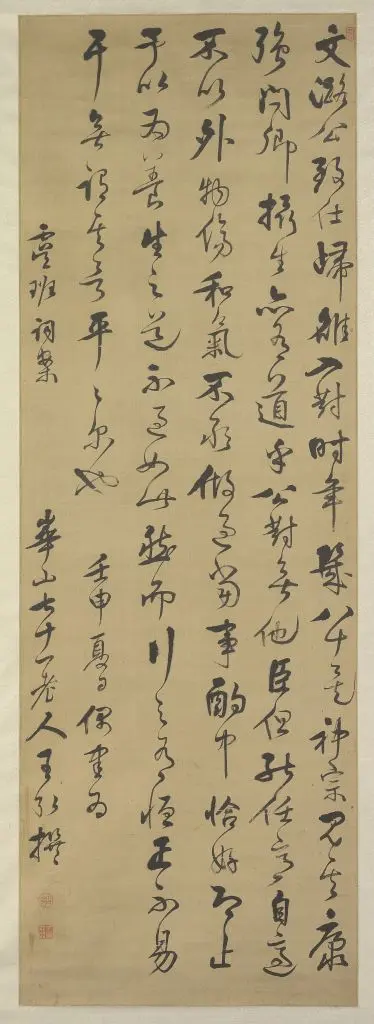 文潞公致仕歸雒入對時年幾八十矣神宗見其康
強問卿攝生亦有道乎公對無他臣但能任意自適
不以外物傷和氣不敢做過當事酌中恰好即止
予以為養生之道不過如此然而行之有恆正不易
干無謂其言平〻尔也 壬申夏日偶書為
虞班詞案 華山七十一老人王弘撰